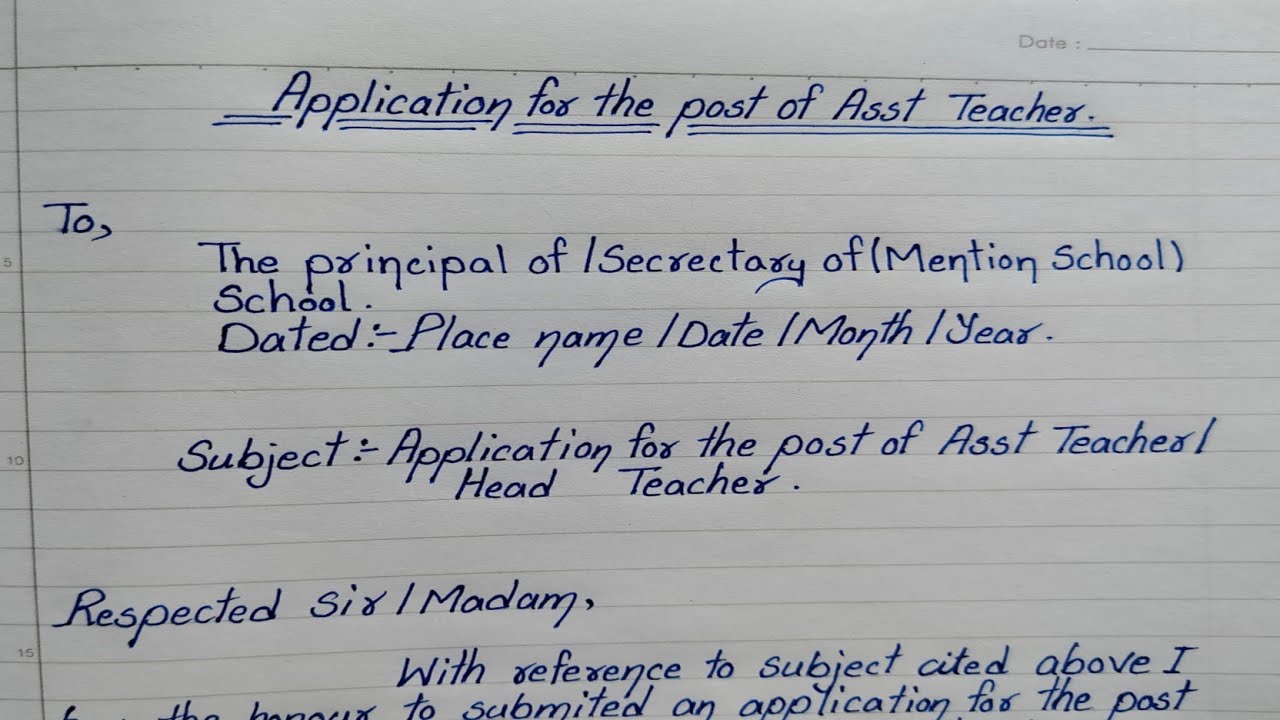 Date :
Application for the post of Asst Teacher.
To,
The principal of /Secrectary of (Mention School)
School.
5
Dated:- Place name / Date / Month / Year.
Subject:- Application for the post of Asst Teacher/
10
Head Teacher.
Respected Sir / Madam,
15
With reference to subject cited above I
the honour to submited an application for the post